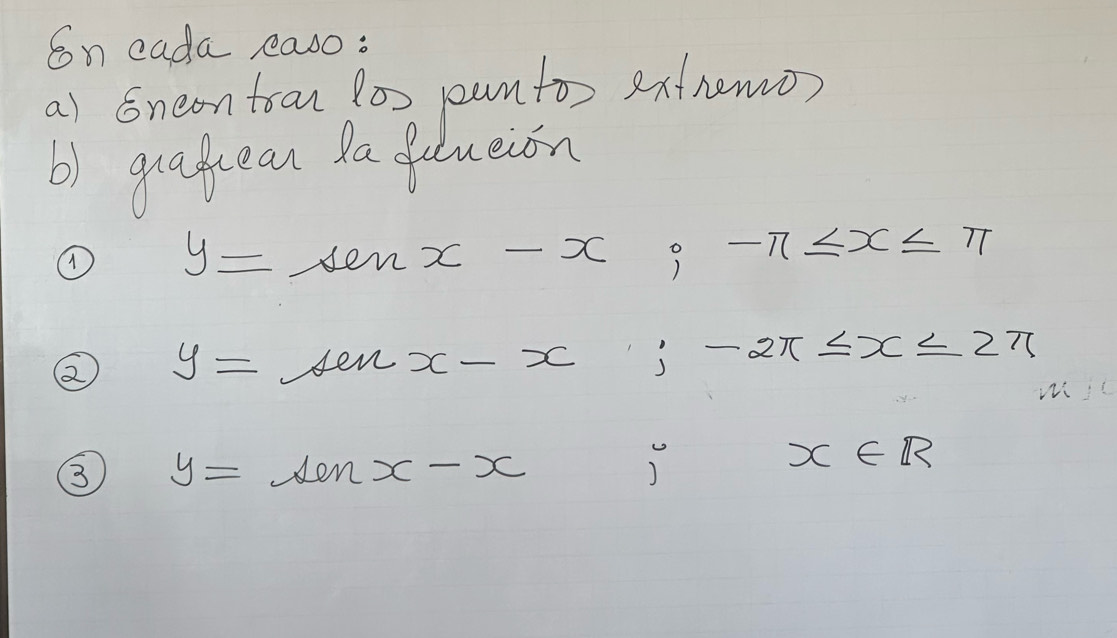 En cada caso:
a) Encontrar los puntos extremos
b) graficar la función
① y = sen x - x ; -π ≤ x ≤ π
② y = sen x - x ; -2π ≤ x ≤ 2π
③ y = sen x - x ; x ∈ ℝ